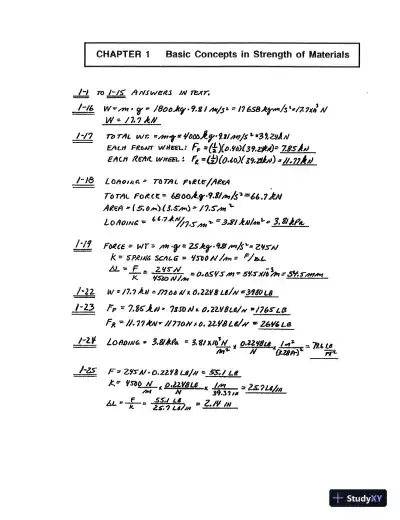 CHAPTER 1 Basic Concepts in Strength of Materials
1-1 TO 1-15 ANSWERS IN TEXT.
1-16 W = m · g = 1800 kg · 9.81 m/s² = 17658 kg·m/s² = 17.7×10³ N
W = 17.7 kN
1-17 TOTAL WT. = m·g = 4000 kg · 9.81 m/s² = 39.24 kN
EACH FRONT WHEEL: F_F = (½)(0.40)(39.24 kN) = 7.85 kN
EACH REAR WHEEL: F_R = (½)(0.60)(39.24 kN) = 11.77 kN
1-18 LOADING = TOTAL FORCE/AREA
TOTAL FORCE = 6800 kg · 9.81 m/s² = 66.7 kN
AREA = (5.0 m)(3.5 m) = 17.5 m²
LOADING = 66.7 kN/17.5 m² = 3.81 kN/m² = 3.81 kPa
1-19 FORCE = WT = m·g = 25 kg · 9.81 m/s² = 245 N
K = SPRING SCALE = 4500 N/m = F/ΔL
ΔL = F/K = 245 N/4500 N/m = 0.0545 m = 54.5×10⁻³ m = 54.5 mm
1-22 W = 17.7 kN = 17700 N × 0.2248 LB/N = 3980 LB
1-23 F_F = 7.85 kN = 7850 N × 0.2248 LB/N = 1765 LB
F_R = 11.77 kN = 11770 N × 0.2248 LB/N = 2646 LB
1-24 LOADING = 3.81 kPa = 3.81×10³ N/m² × 0.2248 LB/N × 1 m²/(3.28 FT)² = 79.6 LB/FT²
1-25 F = 245 N · 0.2248 LB/N = 55.1 LB
K = 4500 N/m × 0.2248 LB/N × 1 m/39.37 IN = 25.7 LB/IN
ΔL = F/K = 55.1 LB/25.7 LB/IN = 2.14 IN
StudyXY